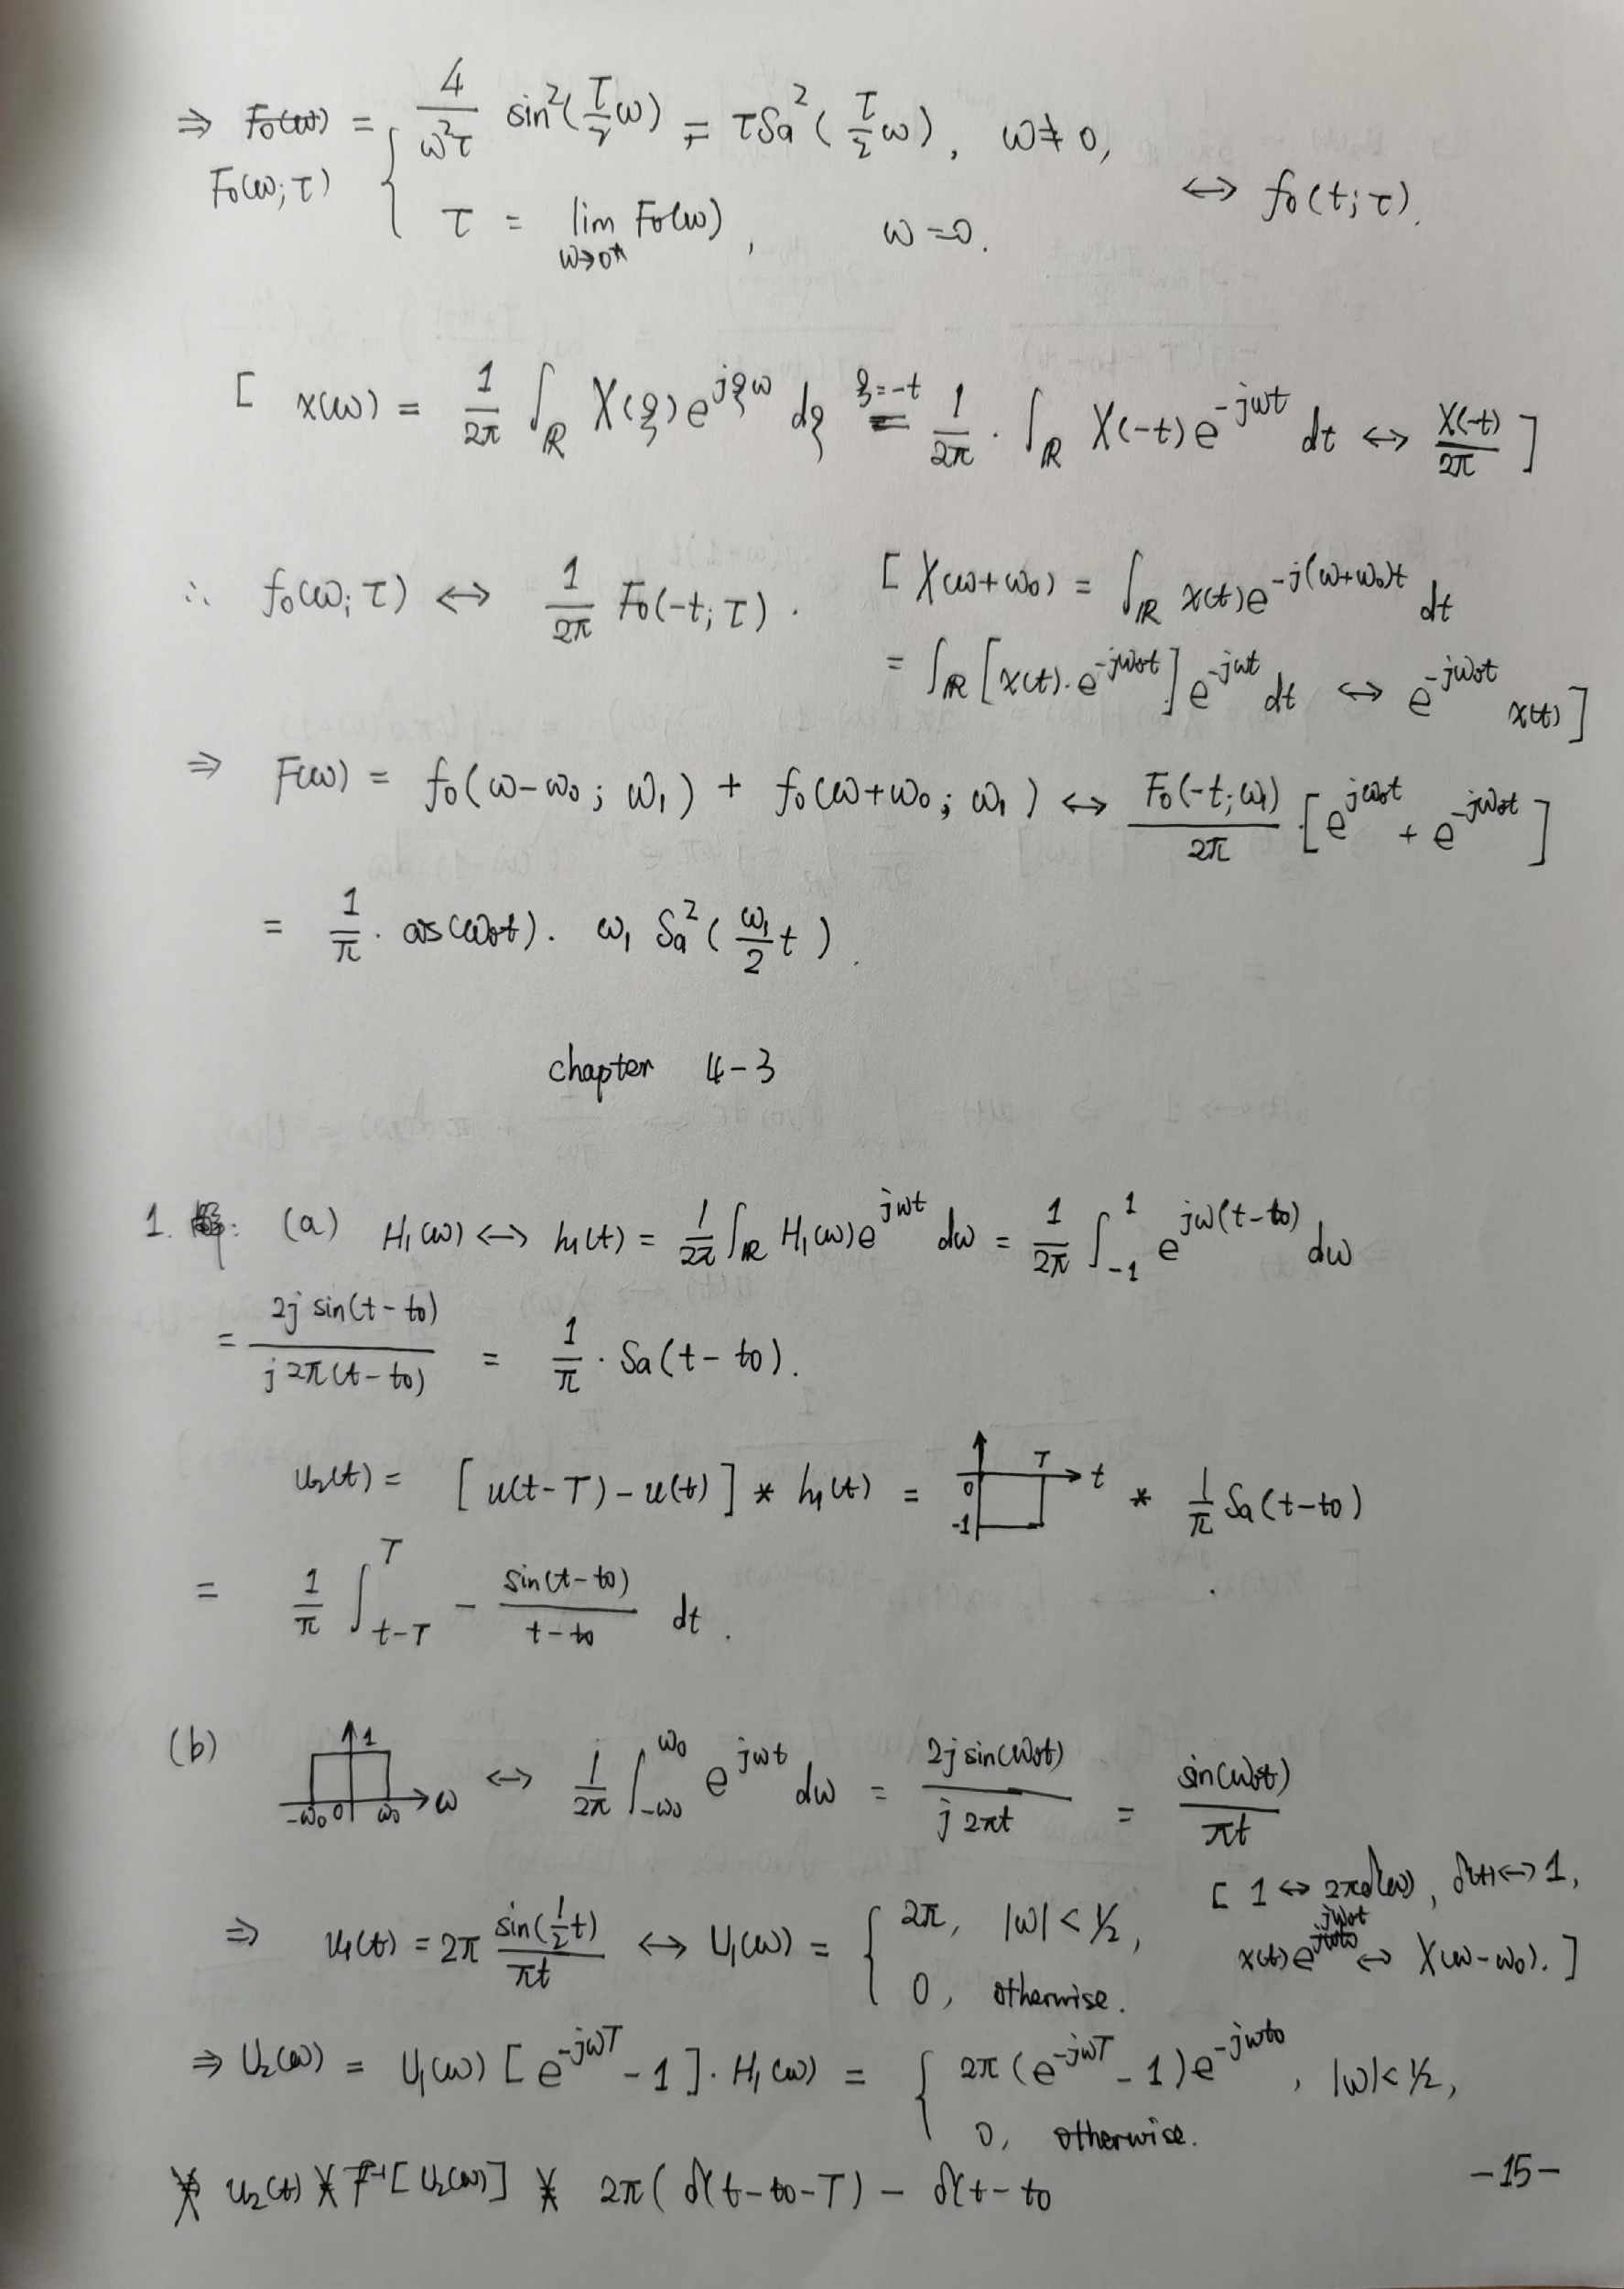 ⇒ F₀(ω) = { 4/(ω²τ) sin²(τ/2 ω) = τSa²(τ/2 ω), ω≠0,
F₀(ω;τ) τ = lim_{ω→0} F₀(ω), ω=0. ↔ f₀(t;τ).
[ x(ω) = 1/2π ∫_ℝ X(ξ)e^{jξω} dξ =^{ξ=-t} 1/2π · ∫_ℝ X(-t)e^{-jωt} dt ↔ X(-t)/2π ]
∴ f₀(ω;τ) ↔ 1/2π F₀(-t;τ).
[ X(ω+ω₀) = ∫_ℝ x(t)e^{-j(ω+ω₀)t} dt
= ∫_ℝ [x(t)·e^{-jω₀t}] e^{-jωt} dt ↔ e^{-jω₀t} x(t) ]
⇒ F(ω) = f₀(ω-ω₀; ω₁) + f₀(ω+ω₀; ω₁) ↔ F₀(-t;ω₁)/2π · [e^{jω₀t} + e^{-jω₀t}]
= 1/π · cos(ω₀t) · ω₁ Sa²(ω₁/2 t).
chapter 4-3
1. (a) H₁(ω) ↔ h₁(t) = 1/2π ∫_ℝ H₁(ω)e^{jωt} dω = 1/2π ∫_{-1}^{1} e^{jω(t-t₀)} dω
= 2j sin(t-t₀) / j2π(t-t₀) = 1/π · Sa(t-t₀).
u₂(t) = [u(t-T)-u(t)] * h₁(t) = 0 T t -1 * 1/π Sa(t-t₀)
= 1/π ∫_{t-T}^{T} - sin(t-t₀)/(t-t₀) dt.
(b) 1 -ω₀ 0 ω₀ ω ↔ 1/2π ∫_{-ω₀}^{ω₀} e^{jωt} dω = 2j sin(ω₀t) / j2πt = sin(ω₀t)/πt
[ 1 ↔ 2πδ(ω), δ(t) ↔ 1,
x(t)e^{jω₀t} ↔ X(ω-ω₀). ]
⇒ u₁(t) = 2π sin(1/2 t)/πt ↔ U₁(ω) = { 2π, |ω|<1/2,
0, otherwise.
⇒ U₂(ω) = U₁(ω) [e^{-jωT} - 1] · H₁(ω) = { 2π(e^{-jωT} - 1)e^{-jωt₀}, |ω|<1/2,
0, otherwise.
u₂(t) F⁻¹[U₂(ω)] 2π( δ(t-t₀-T) - δ(t-t₀
-15-